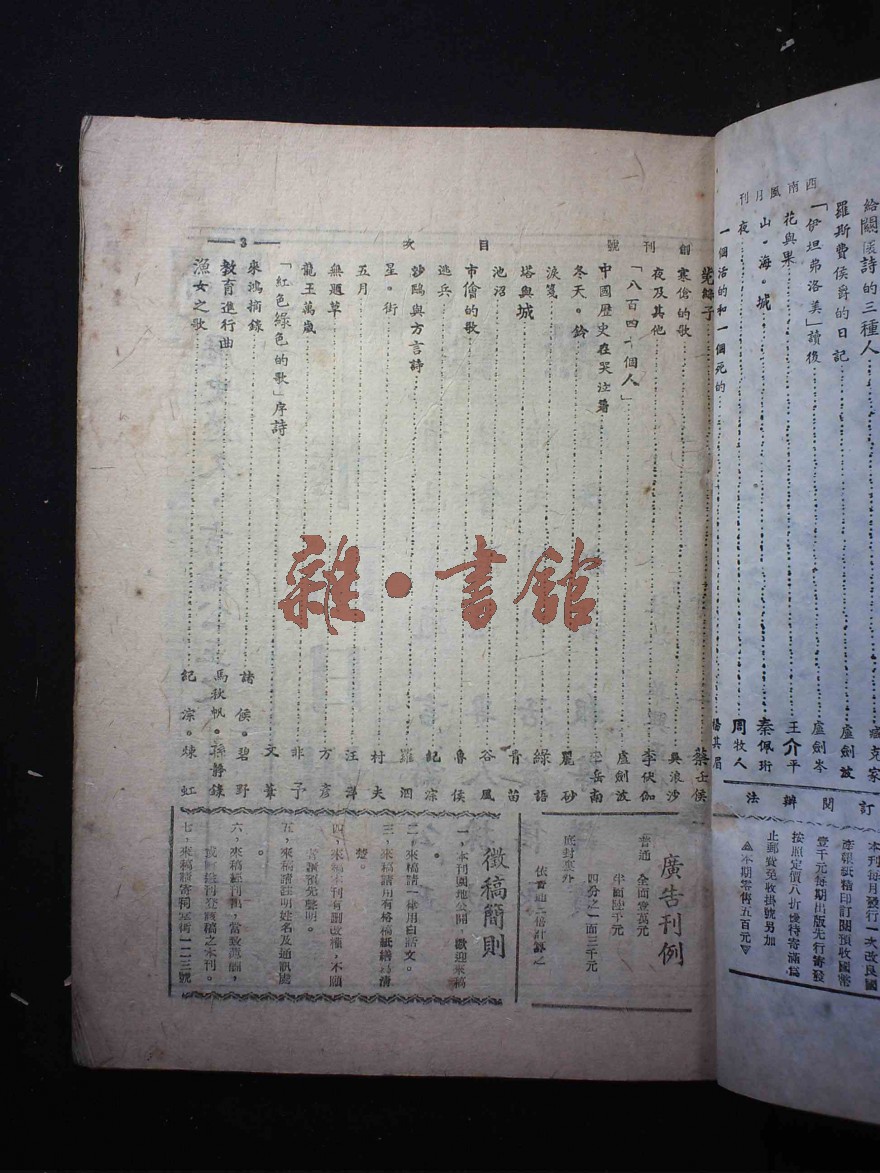 西南風月刊
給關區詩的三種人 臧克家
羅斯費侯爵的日記 盧劍波
「伊坦弗洛美」讀後 盧劍岑
花與果 王介平
山・海・城 秦佩珩
夜 周牧人
一個活的和一個死的 楊其眉
訂閱辦法
本刊每月發行一次改良國
壹千元每期出版先行寄發
按照定價八折優待寄滿為
止郵費免收掛號另加
▲本期零售五百元▼
創刊號 目次 3
菟絲子 蔡壬侯
寒傖的歌 吳浪沙
夜及其他 李伏伽
「八百四十個人」 盧劍波
中國歷史在哭泣着 李岳南
冬天。鈴 麗砂
淚箋 綠語
塔與城 青苗
池沼 谷風
市儈的歌 魯侯
逃兵 紀淙
沙鷗與方言詩 羅泗
星・街 村夫
五月 汪洋
無題草 方彥
龍王萬歲 非予
「紅色綠色的歌」序詩 文葦
來鴻摘錄 諸侯。碧野
教育進行曲 馬狄帆。孫靜錄
漁女之歌 紀淙。煉虹
廣告刊例
普通 全面壹萬元
半面陸千元
四分之一面三千元
底封裏外
依普通二倍計算之
徵稿簡則
一，本刊園地公開，歡迎來稿
。
二，來稿請一律用白話文。
三，來稿請用有格稿紙繕寫清
楚。
四，來稿本刊有刪改權，不願
者須預先聲明。
五，來稿請註明姓名及通訊處
。
六，來稿經刊載，當致薄酬，
或贈送刊登該稿之本刊。
七，來稿請寄祠堂街一二三號
雜・書館